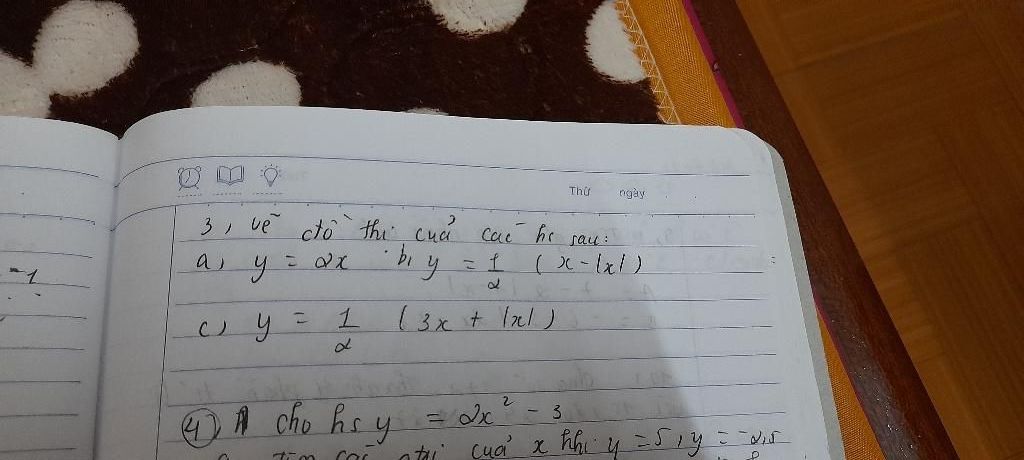 Thứ ngày
3, vẽ đồ thị cuả các hs sau:
a, y = 2x b, y = 1/2 (x - |x|)
c) y = 1/2 (3x + |x|)
-1
④ cho hs y = 2x² - 3
cuả x khi y = 5, y = -2,5